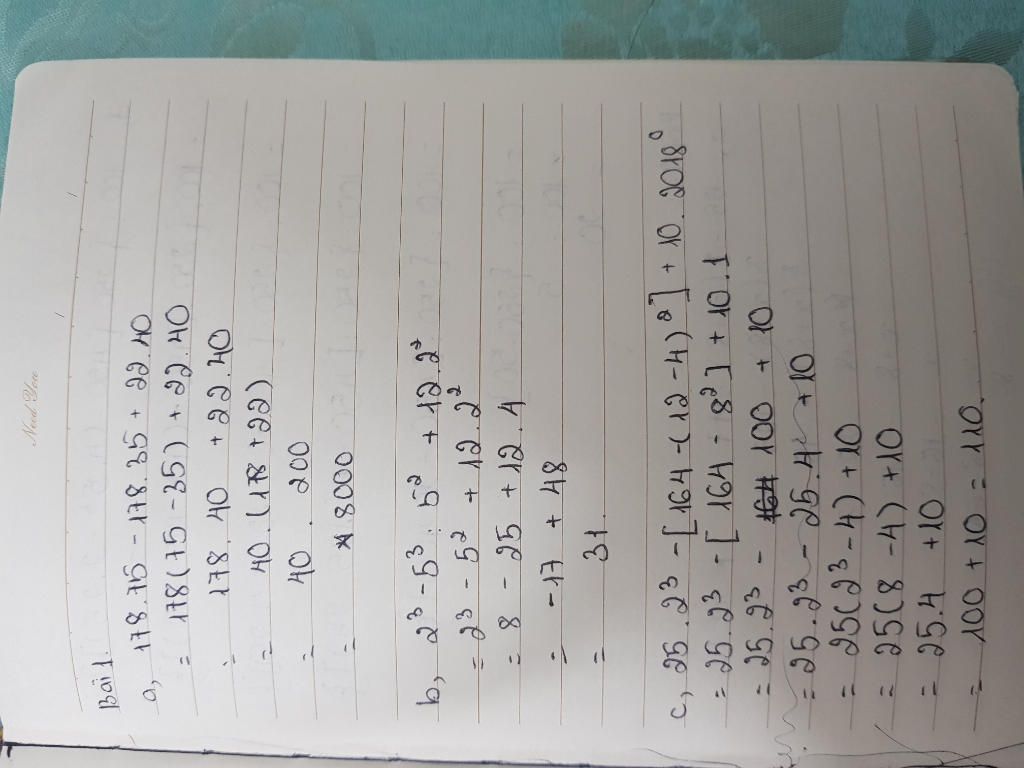 Need You
Bài 1.
a, 178.75 - 178.35 + 22.40
= 178(75 - 35) + 22.40
= 178.40 + 22.40
= 40.(178 + 22)
= 40 . 200
= 8000
b, 2³ - 5³ : 5² + 12.2²
= 2³ - 5² + 12.2²
= 8 - 25 + 12.4
= -17 + 48
= 31.
c, 25.2³ - [164 - (12 - 4)²] + 10.2018⁰
= 25.2³ - [164 - 8²] + 10.1
= 25.2³ - 100 + 10
= 25.2³ - 25.4 + 10
= 25(2³ - 4) + 10
= 25(8 - 4) + 10
= 25.4 + 10
= 100 + 10 = 110.